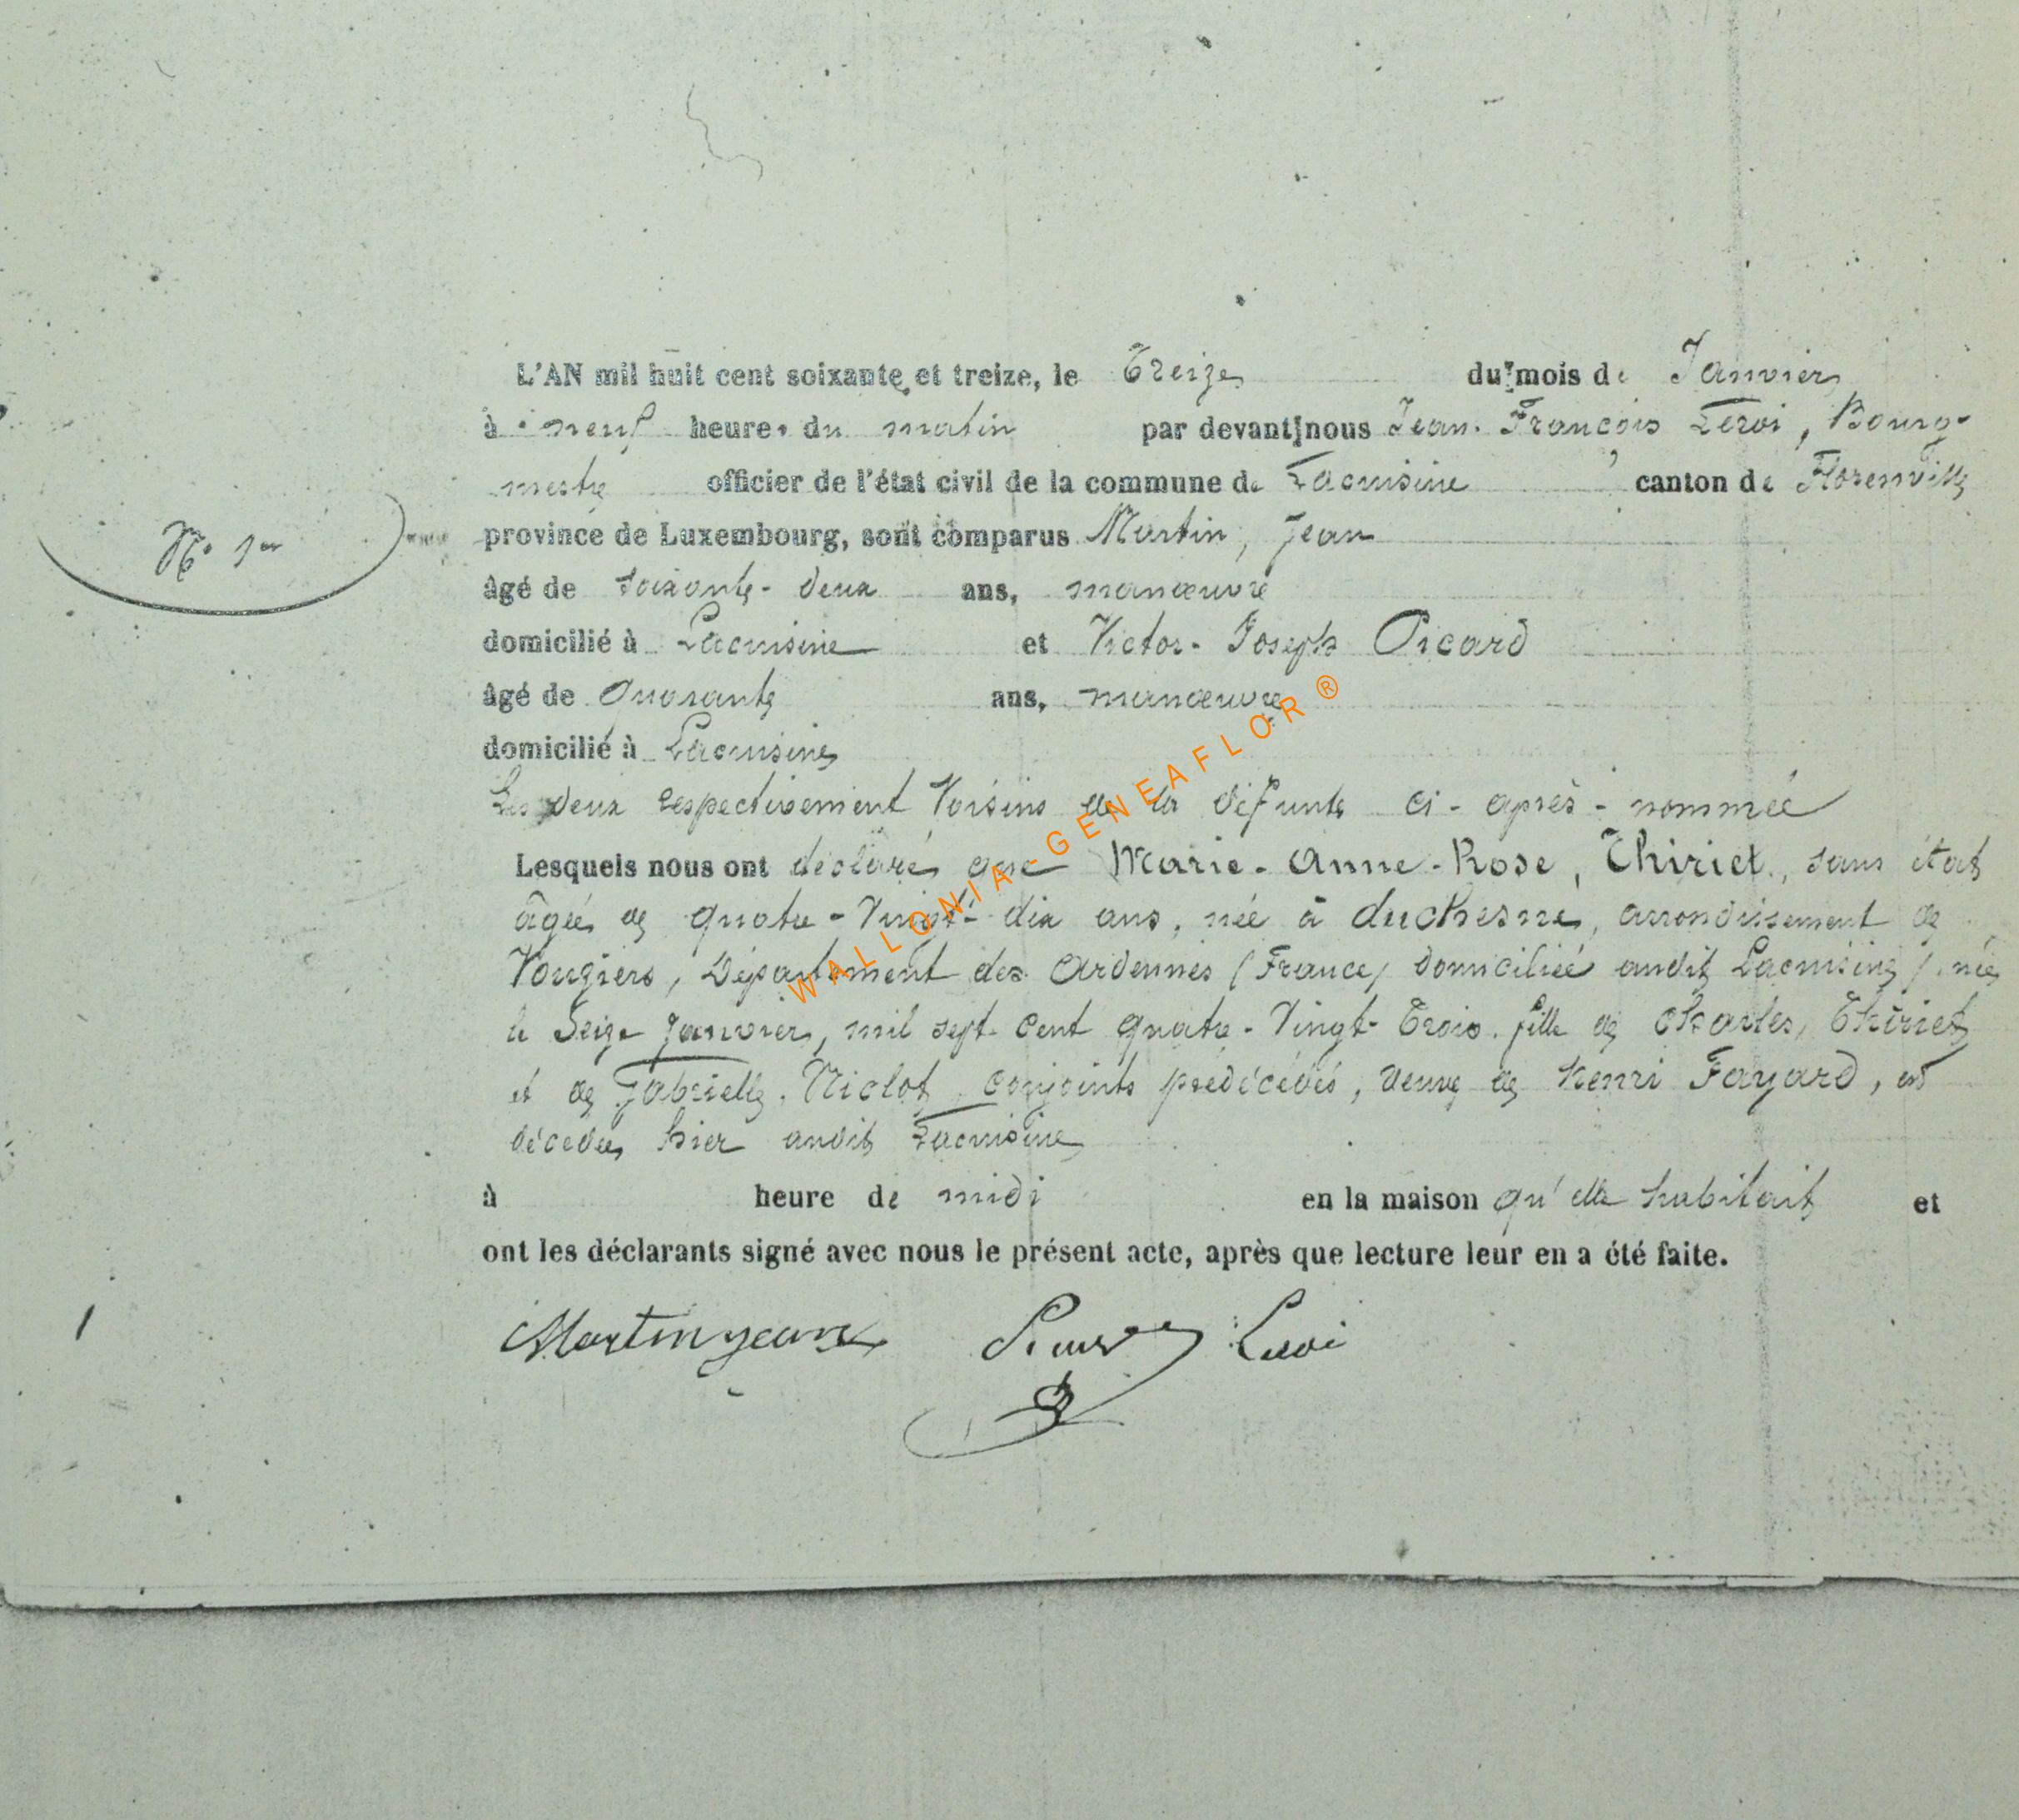 L'AN mil huit cent soixante et treize, le Treize du mois de Janvier
à neuf heures du matin par devant nous Jean-François Leroi, Bourg-
mestre officier de l'état civil de la commune de Lacuisine canton de Florenville
N° 1er
province de Luxembourg, sont comparus Martin, Jean
âgé de soixante-deux ans, manœuvre
domicilié à Lacuisine et Victor-Joseph Picard
âgé de quarante ans, manœuvre
domicilié à Lacuisine
Les deux respectivement Voisins de la défunte ci-après-nommée
Lesquels nous ont déclaré que Marie-Anne-Rose, Thiriet, sans état
âgée de quatre-Vingt-dix ans, née à duchesne, arrondissement de
Vouziers, Département des Ardennes (France) domiciliée audit Lacuisine, née
le Seize Janvier, mil sept-cent quatre-Vingt-Trois. fille de Charles, Thiriet
et de Gabrielle, Niclot, conjoints prédécédés, veuve de henri Fayard, est
décédée hier audit Lacuisine
à heure de midi en la maison qu'elle habitait et
ont les déclarants signé avec nous le présent acte, après que lecture leur en a été faite.
Martin jean Leroi
WALLONIA-GENEAFLOR ®